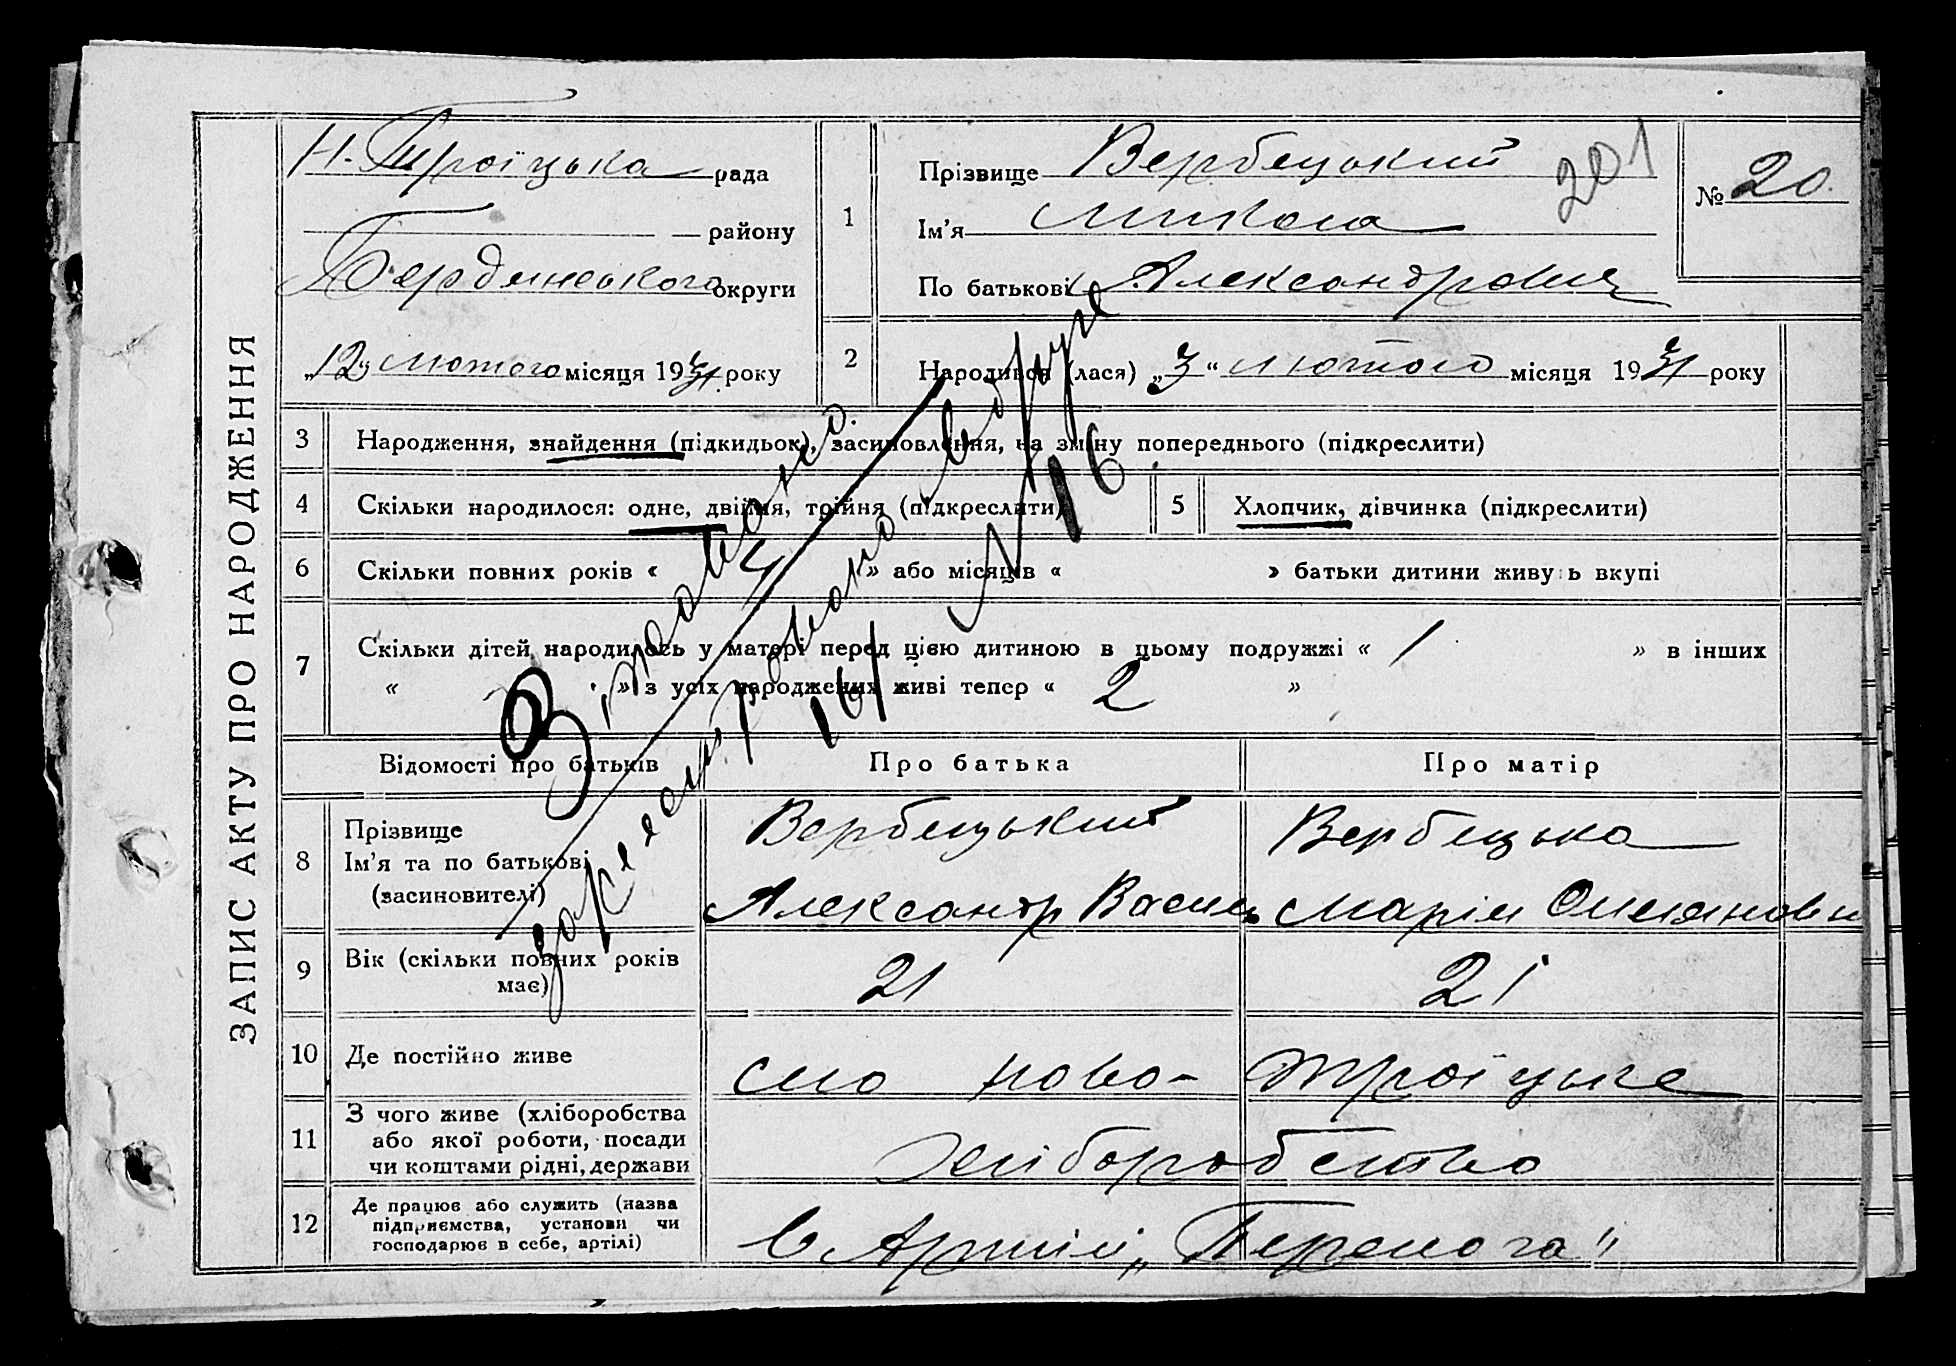 ЗАПИС АКТУ ПРО НАРОДЖЕННЯ
Н-Троїцька рада
району
Бердянського округи
„12„ лютого місяця 1931 року
1
Прізвище Вербецький
Ім’я Микола
По батькові Александрович
201
№ 20.
2
Народився (лася) „3“ лютого місяця 1931 року
3 Народження, знайдення (підкидьок), засиновлення, на зміну попереднього (підкреслити)
4 Скільки народилося: одне, двійня, трійня (підкреслити) 5 Хлопчик, дівчинка (підкреслити)
6 Скільки повних років « » або місяців « » батьки дитини живуть вкупі
7 Скільки дітей народилось у матері перед цією дитиною в цьому подружжі « 1 » в інших
« » з усіх народжених живі тепер « 2 »
Відомості про батьків Про батька Про матір
8 Прізвище
Ім’я та по батькові
(засиновителі)
Вербецький Вербецька
Александр Василь Марія Омеляновн
9 Вік (скільки повних років
має)
21 21
10 Де постійно живе
село ново- троїцьке
11 З чого живе (хліборобства
або якої роботи, посади
чи коштами рідні, держави
Хліборобство
12 Де працює або служить (назва
підприємства, установи чи
господарює в себе, артілі)
в Артілі „Перемога“
16/
№ 16